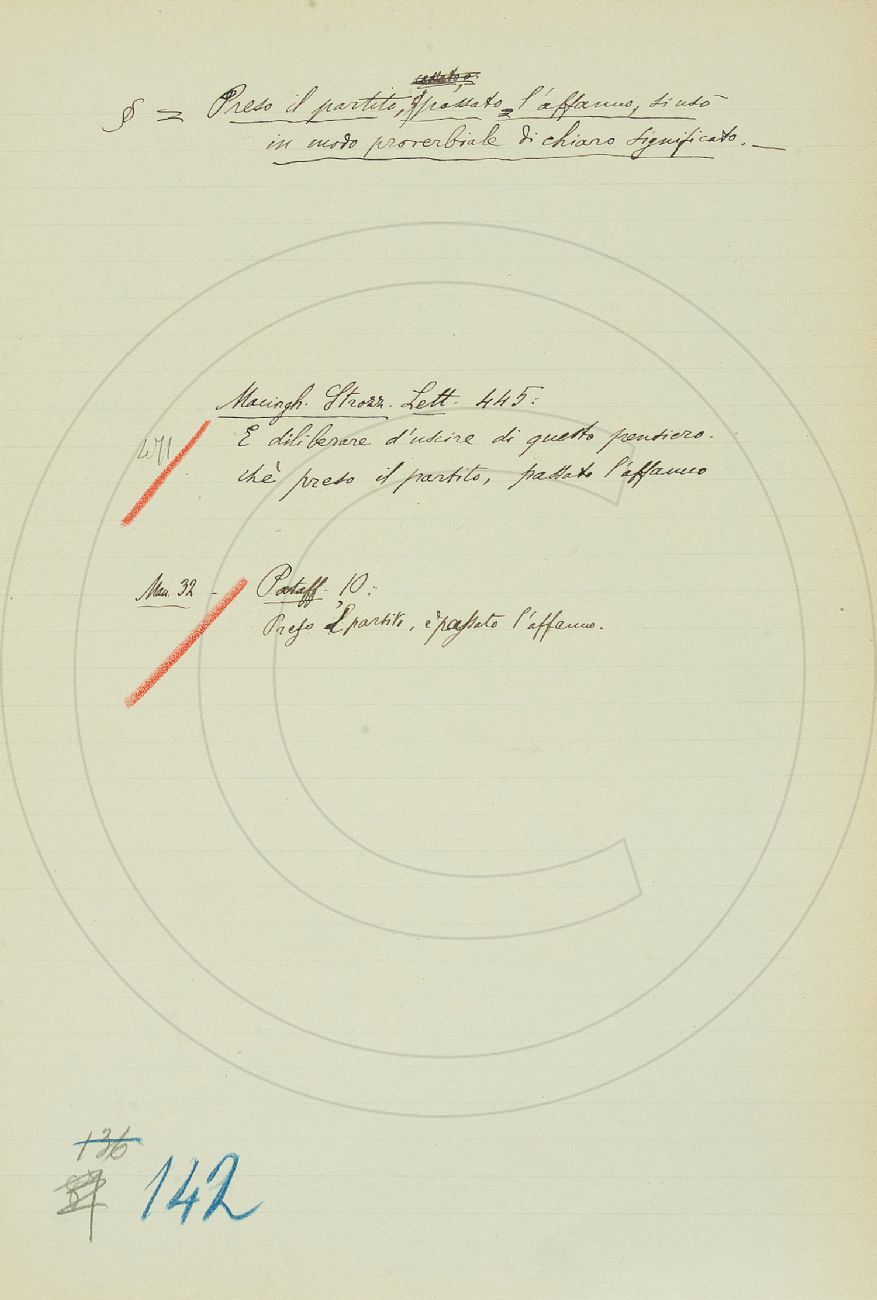 § = Preso il partito, passato l'affanno, si usò
in modo proverbiale di chiaro significato. —
Macingh. Strozz. Lett. 445:
E diliberare d'uscire di questo pensiero.
chè preso il partito, passato l'affanno
471
Man. 32 - Pataff. 10:
Preso 'l partito, è passato l'affanno.
136
142